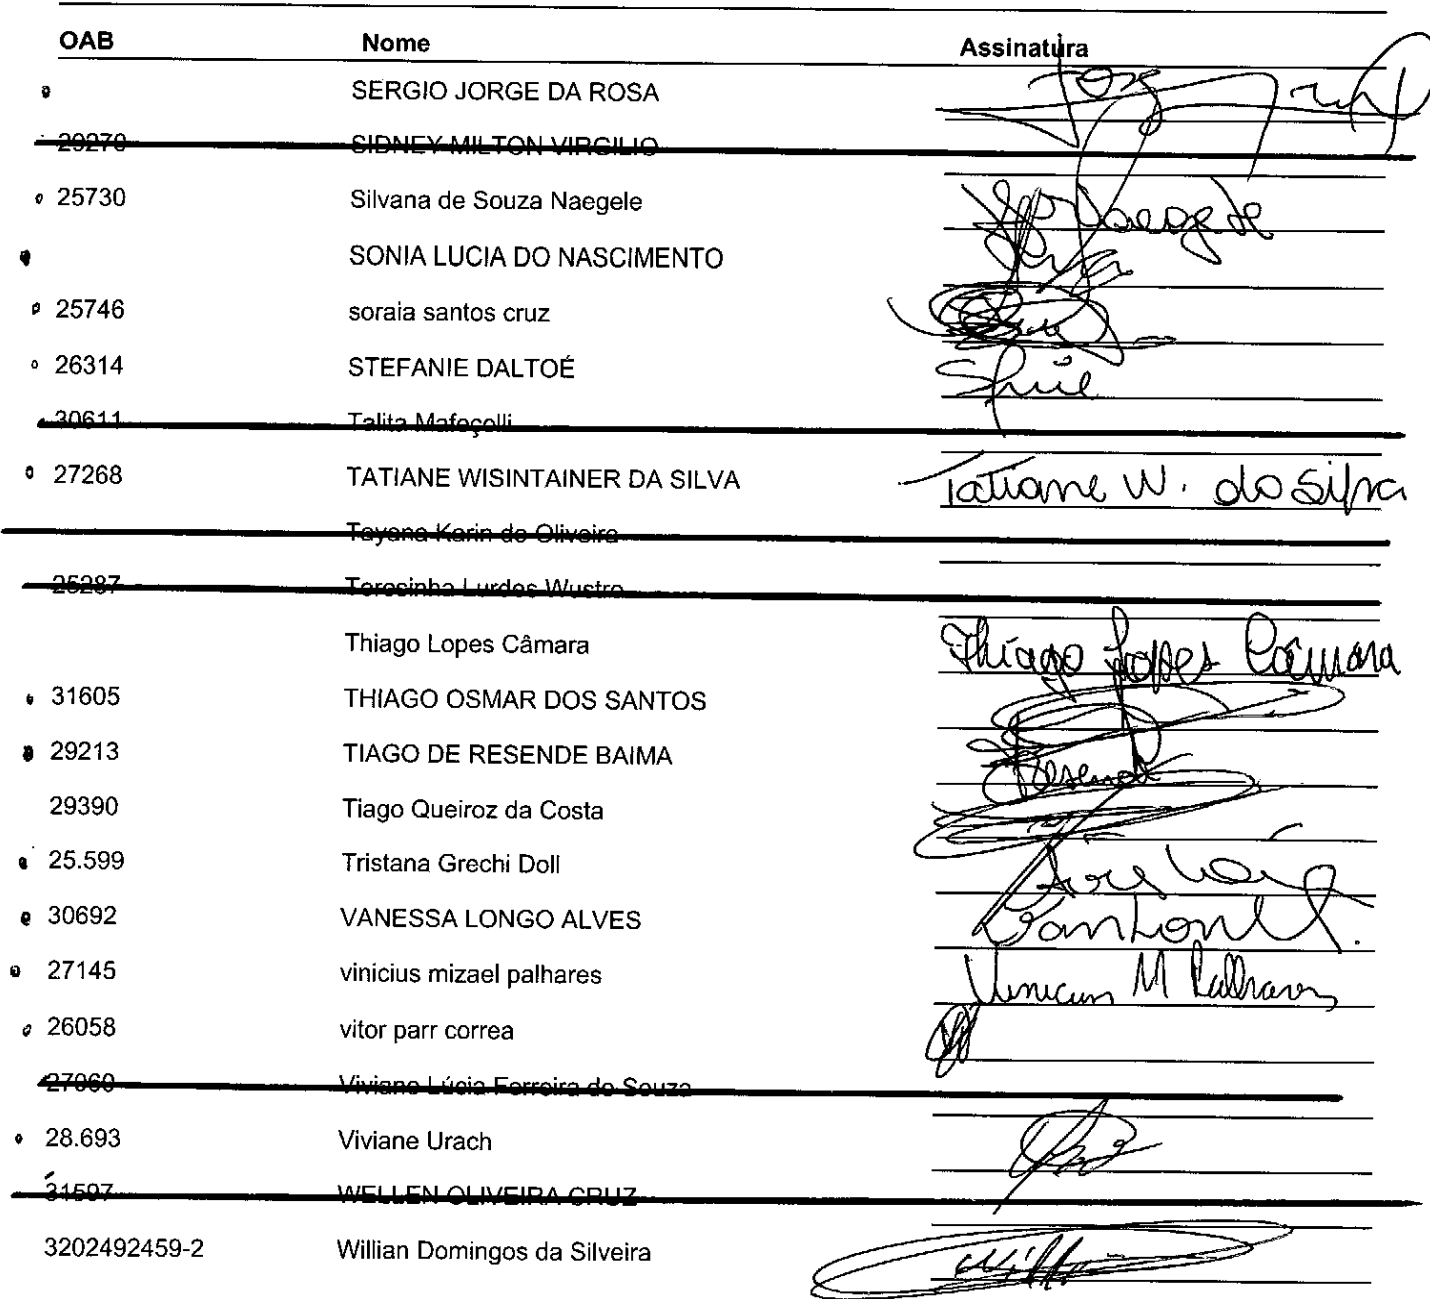 OAB Nome Assinatura
SERGIO JORGE DA ROSA
29270 SIDNEY MILTON VIRGILIO
25730 Silvana de Souza Naegele Naegele
SONIA LUCIA DO NASCIMENTO
25746 soraia santos cruz
26314 STEFANIE DALTOÉ
30611 Talita Mafeçolli
27268 TATIANE WISINTAINER DA SILVA Tatiane W. da Silva
Tayana Karin de Oliveira
25287 Teresinha Lurdes Wustro
Thiago Lopes Câmara Thiago Lopes Câmara
31605 THIAGO OSMAR DOS SANTOS
29213 TIAGO DE RESENDE BAIMA Resende
29390 Tiago Queiroz da Costa
25.599 Tristana Grechi Doll
30692 VANESSA LONGO ALVES
27145 vinicius mizael palhares Vinicius M Palhares
26058 vitor parr correa
27060 Viviane Lúcia Ferreira de Souza
28.693 Viviane Urach
31597 WELLEN OLIVEIRA CRUZ
3202492459-2 Willian Domingos da Silveira